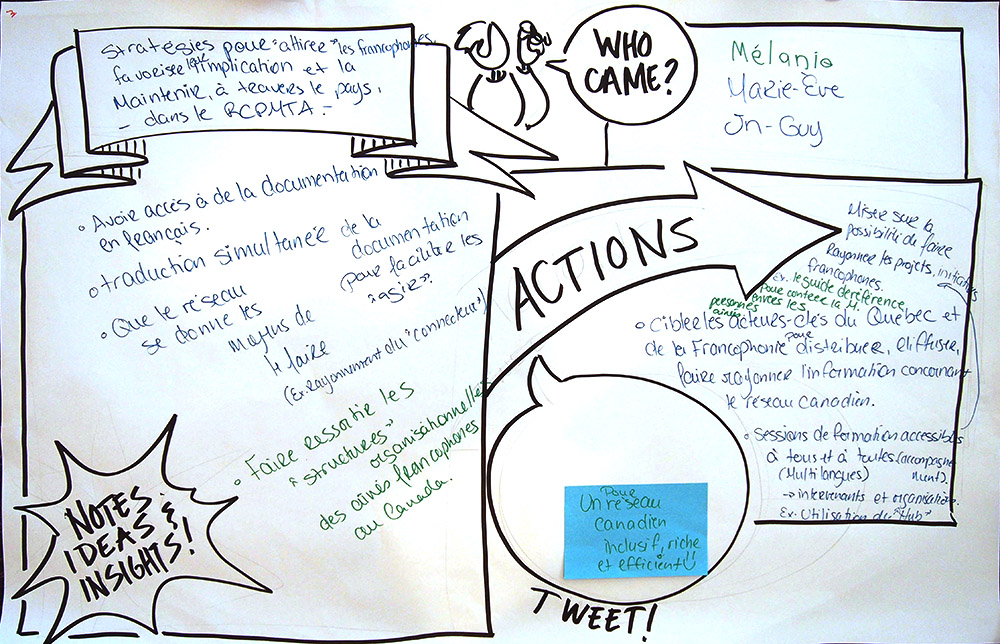 Stratégies pour "attirer" les francophones,
favoriser l'implication et la
Maintenir, à travers le pays,
- dans le RCPMTA -
WHO
CAME?
Mélanie
Marie-Eve
Jn-Guy
• Avoir accès à de la documentation
en français.
• traduction simultanée de la
documentation
pour faciliter les
"agir".
• Que le réseau
se donne les
moyens de
le faire
(Ex: Rayonnement du "connecteur")
• Faire ressortir les
"structures"
organisationnelles
des aînés francophones
au Canada.
NOTES
IDEAS &
INSIGHTS!
ACTIONS
Miser sur la
possibilité de faire
Rayonner les projets, initiatives
francophones.
Ex. le guide de référence
pour contrer la M.
envers les
personnes
aînées
• Cibler les acteurs-clés du Québec et
de la Francophonie pour distribuer, diffuser,
faire rayonner l'information concernant
le réseau canadien.
• Sessions de formation accessibles
à tous et à toutes (accompagne
(Multilangues) ment).
→ intervenants et organisations.
Ex. Utilisation du "Hub"
Pour
Un réseau
canadien
inclusif, riche
et efficient!!
TWEET!